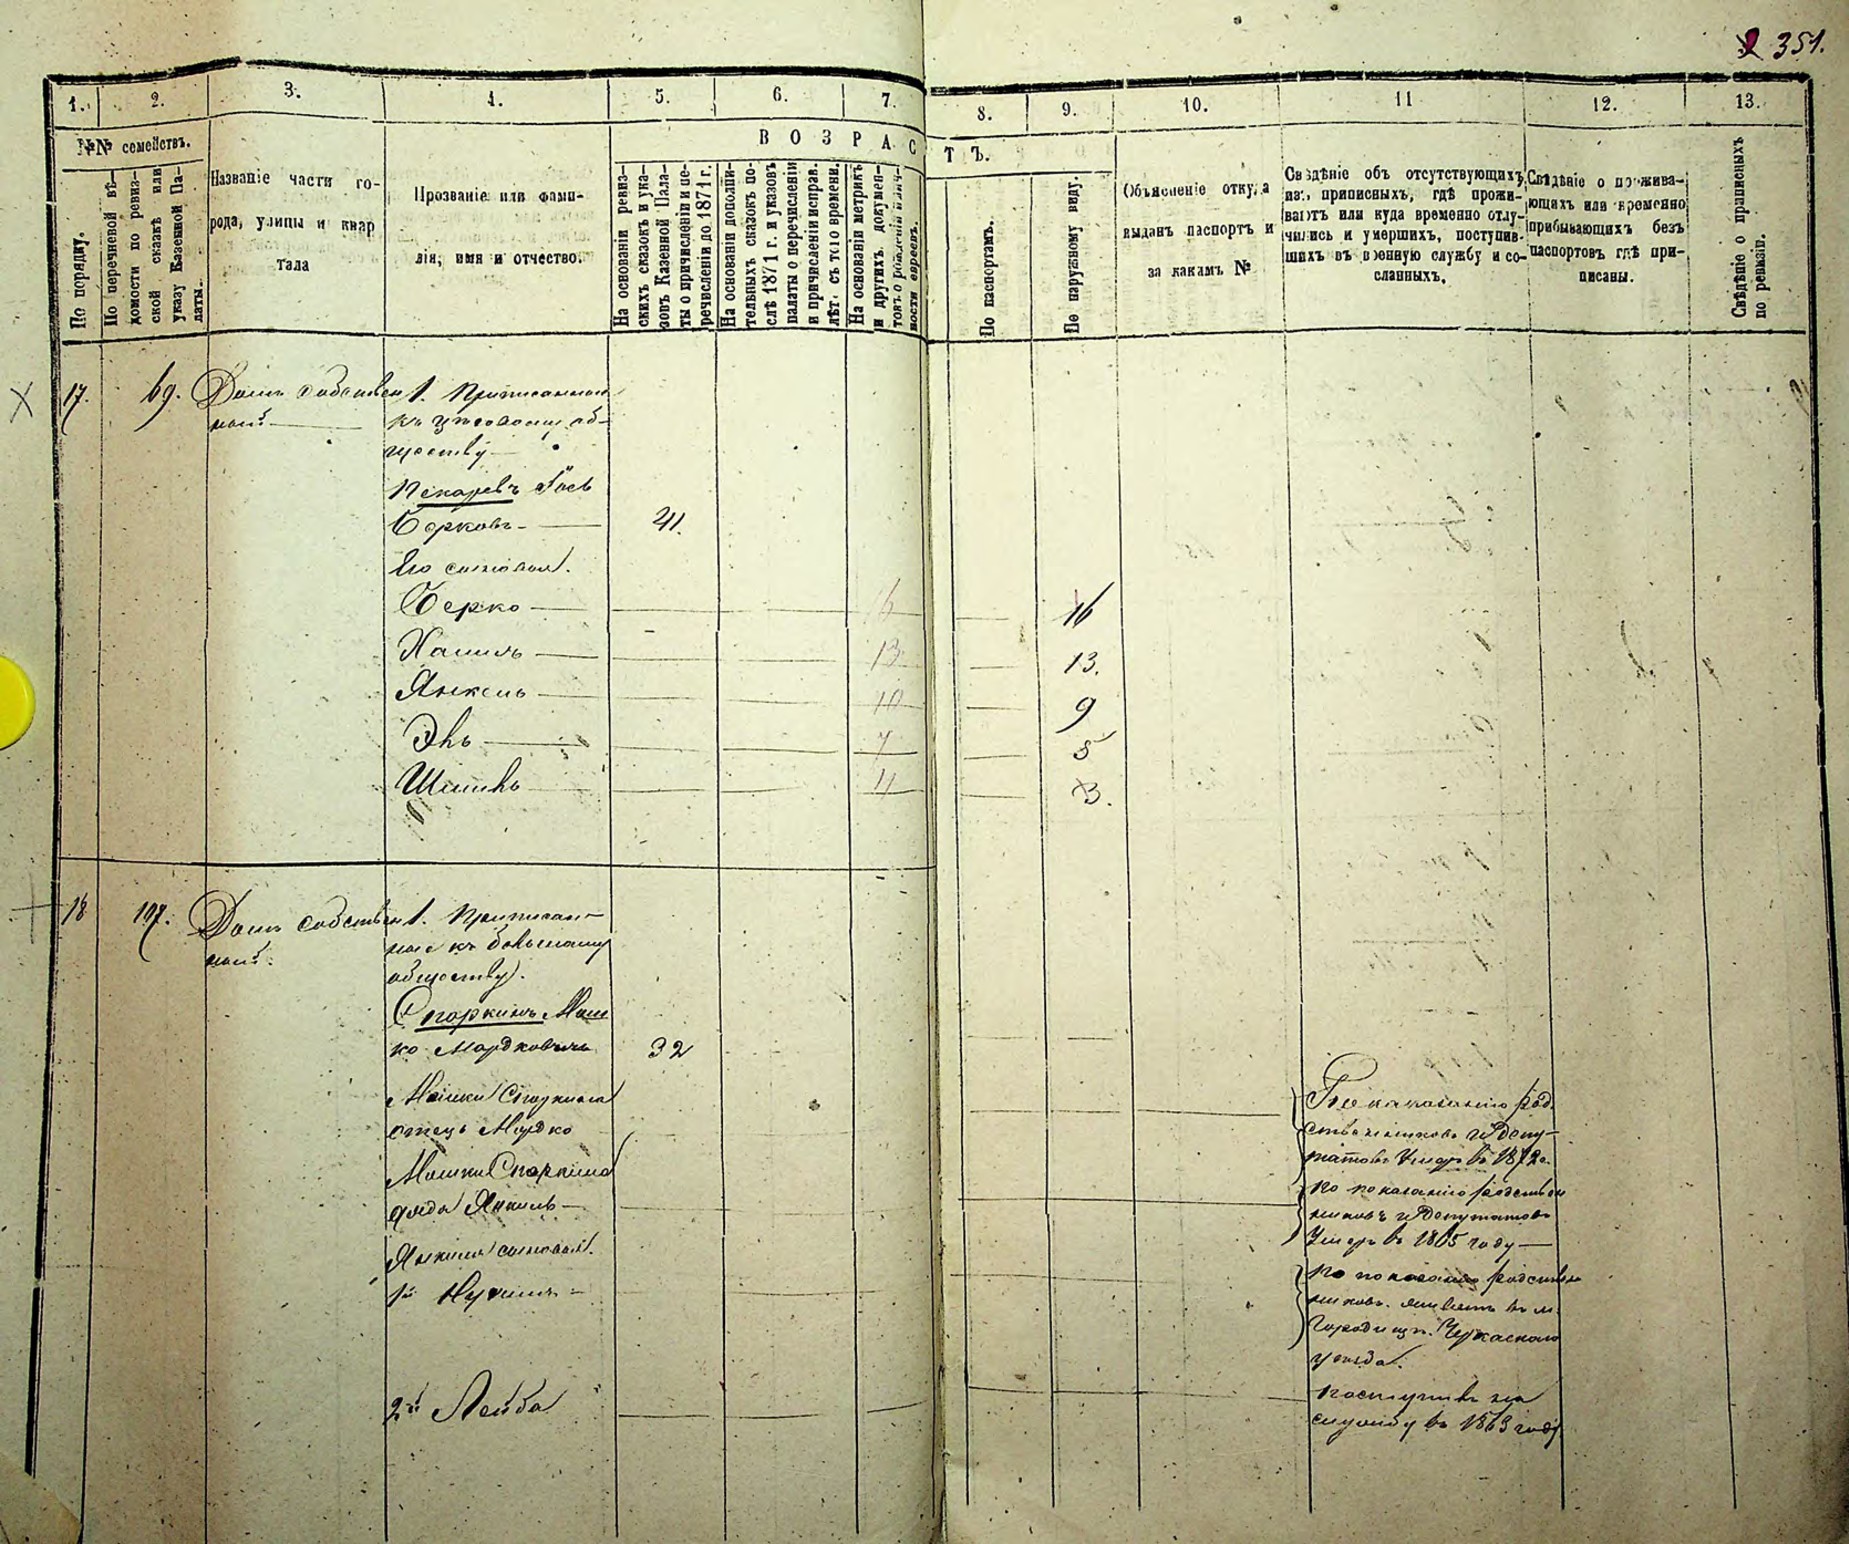 351.
1.
2.
3.
4.
5.
6.
7.
8.
9.
10.
11
12.
13.
№№ семействъ.
ВОЗРАСТЪ.
По порядку.
По перечневой вѣ-
домости по ревиз-
ской сказкѣ или
указу Казенной Па-
латы.
Названіе части го-
рода, улицы и квар
тала
Прозваніе или фами-
лія, имя и отчество.
На основаніи ревиз-
скихъ сказокъ и ука-
зовъ Казенной Пала-
ты о причисленіи и пе-
речисленіи до 1871 г.
На основаніи дополни-
тельныхъ сказокъ по-
слѣ 1871 г. и указовъ
палаты о перечисленіи
и причисленіи исправ.
лѣт. съ того времени.
На основаніи метрикъ
и другихъ докумен-
товъ о рожденіи
ности евреевъ.
По паспортамъ.
По наружному виду.
Объясненіе откуда
выданъ паспортъ и
за какамъ №
Свѣдѣніе объ отсутствующихъ
изъ приписныхъ, гдѣ прожи-
ваютъ или куда временно отлу-
чились и умершихъ, поступив-
шихъ въ военную службу и со-
сланныхъ.
Свѣдѣніе о прожива-
ющихъ или временно
прибывающихъ безъ
паспортовъ гдѣ при-
писаны.
Свѣдѣніе о приписныхъ
по ревизіи.
17.
69.
Домъ собствен
ной
1. Приписанная
къ об-
ществу
Пекаревъ Іось
Берковъ 41.
Его сыновья.
Берко 16 16
Хаимъ 13 13.
Янкель 10 9
7 5
4 3.
18
107.
Домъ собствен
ной.
1. Приписан-
ные къ бывшему
обществу.
Спаркинъ Мош
ко Мордковичъ 32
Мошки Спаркина
отецъ Мордко
По показанію род
ственниковъ и депу-
татовъ умеръ въ 1872 г.
Мошки Спаркина
дядя Янкель
По показанію родствен
никовъ и депутатовъ
умеръ въ 1865 году
Янкеля сыновья.
1й Нухимъ
По показанію родствен
никовъ живетъ въ м.
Городищѣ Черкаскаго
уѣзда.
2й Лейба
поступилъ на
службу въ 1863 году